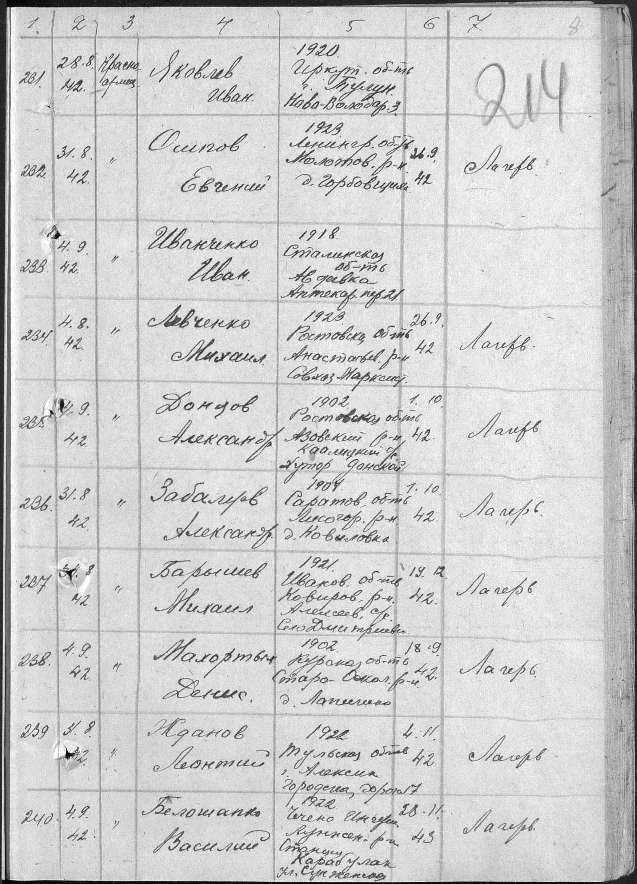 1. 2 3 4 5 6 7 8
214
231. 28.8. 42. Красно армеец Яковлев Иван.
1920
Иркут. об-ть
" Тулун.
Ново-Володар 3.
232 31.8. 42. " Осипов Евгений 26.9. 42 Лагерь.
1923
Ленингр. об-ть
Молотов. р-н
д. Горбовщина
233. 4.9. 42. " Иванченко Иван.
1918
Сталинская
об-ть
Авдеевка
Аптекар. пер 21
234. 4.8. 42. " Левченко Михаил. 26.9. 42 Лагерь.
1923
Ростовска. об-ть
Анастасьев. р-н
Совхоз Марксит.
235 4.9. 42 " Донцов Александр 1.10. 42. Лагерь
1902
Ростовская об-ть
Азовский р-н.
Хутор Донской
236. 31.8 42 " Забалуев Александр. 1.10. 42. Лагерь.
1904
Саратов. об-ть
Лысогор. р-н
д. Ковыловка
237 8 42 " Барышев Михаил 19.12 42. Лагерь
1921.
Иванов. об-ть
Ковиров. р-н.
Алексеев. с/с
Село Дмитриевск
238. 4.9. 42 " Махортых Денис. 18.9 42. Лагерь.
1902
Курская об-ть
Старо-Оскол. р-н.
д. Лапыгино
239 4.8. 42. " Жданов Леонтий 4.11. 42 Лагерь
1922
Тульская об-ть
г. Алексин
Городская, дорога 17
240. 4.9. 42. " Белошапко Василий 28.11. 43 Лагерь.
1922
Чечено Ингуш.
Сунжен. р-н
Станица
Карабулак
ул. Сунженская